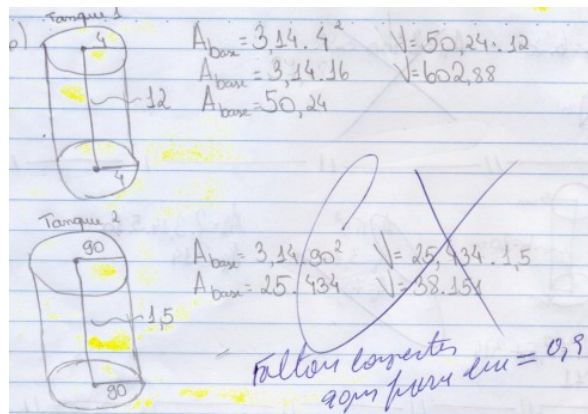 Tanque 1
b)
4
12
4
A base = 3,14.4²
A base = 3,14.16
A base = 50,24
V = 50,24.12
V = 602,88
Tanque 2
90
1,5
90
A base = 3,14.90²
A base = 25.434
V = 25,434.1,5
V = 38.151
Faltou converter
aqui para = 0,9